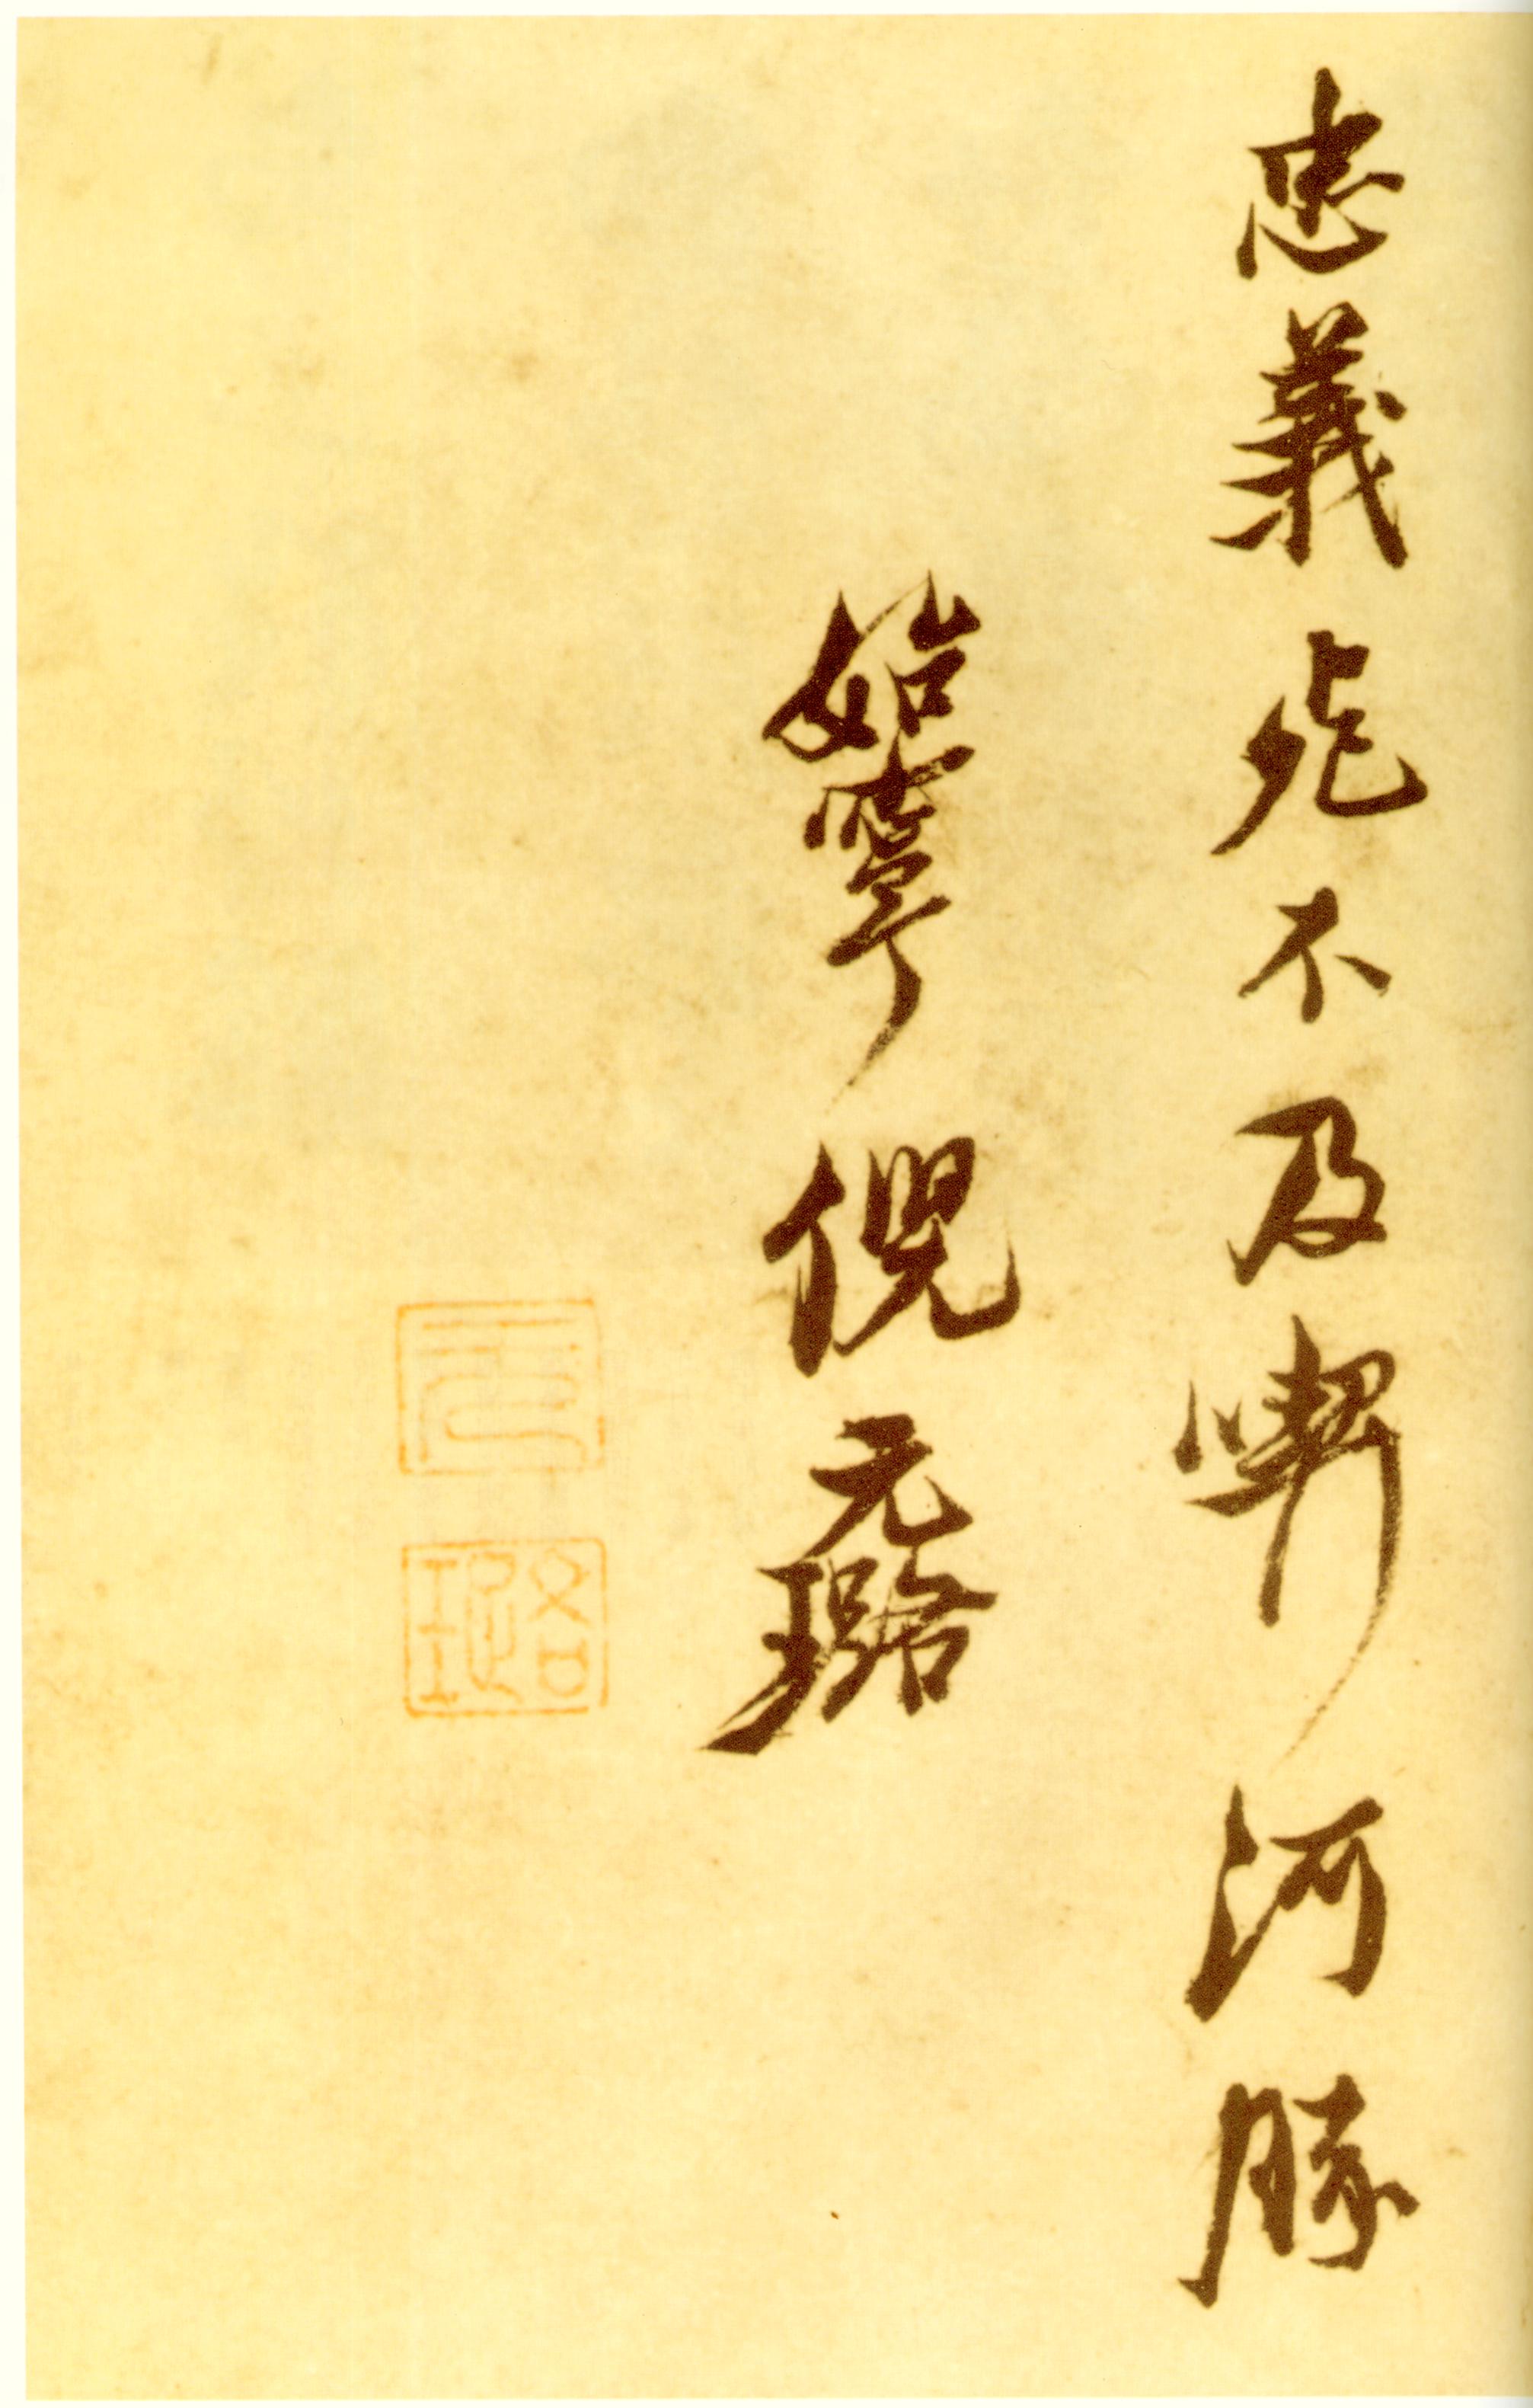 忠義死不及喫河豚
始寧倪元璐
元
璐